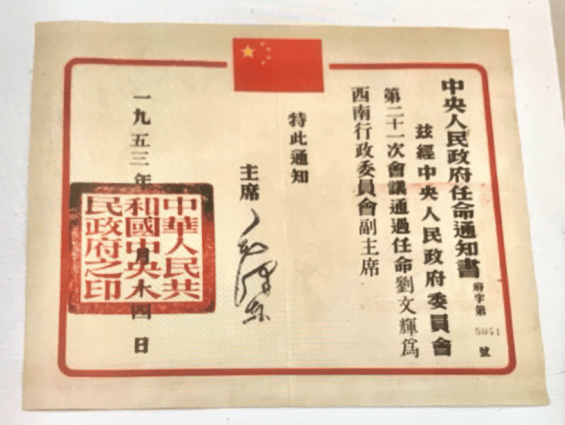 中央人民政府任命通知書
府字第5051號
茲經中央人民政府委員會
第二十一次會議通過任命劉文輝爲
西南行政委員會副主席
特此通知
主席
毛澤東
一九五三年 月 四日
中華人民共
和國中央人
民政府之印